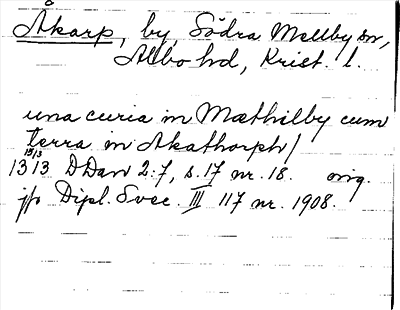 Åkarp, by, Södra Mellby sn,
Albo hd, Krist. l.
una curia in Mæthilby cum
terra in Akathorph/
13 15/13 13 DDan 2:7, s. 17 nr. 18. orig.
jfr Dipl. Svec. III 117 nr. 1908.